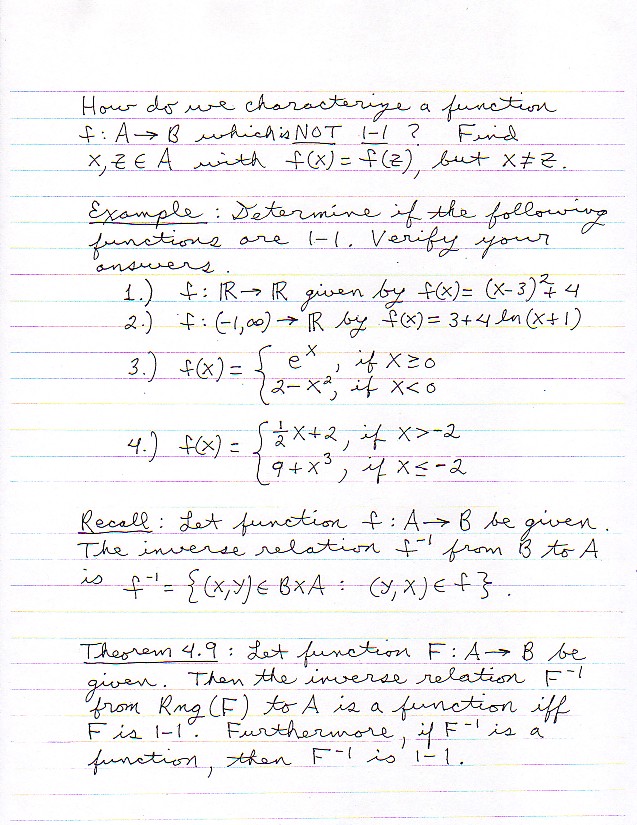 How do we characterize a function
f : A → B which is NOT 1-1 ? Find
x, z ∈ A with f(x) = f(z), but x ≠ z.
Example : Determine if the following
functions are 1-1. Verify your
answers.
1.) f : ℝ → ℝ given by f(x) = (x-3)² + 4
2.) f : (-1,∞) → ℝ by f(x) = 3+4 ln(x+1)
3.) f(x) = { e^x , if x ≥ 0
2-x², if x < 0
4.) f(x) = { ½x+2, if x > -2
9+x³, if x ≤ -2
Recall : Let function f : A → B be given.
The inverse relation f⁻¹ from B to A
is f⁻¹ = {(x,y) ∈ B×A : (y,x) ∈ f}.
Theorem 4.9 : Let function F : A → B be
given. Then the inverse relation F⁻¹
from Rng(F) to A is a function iff
F is 1-1. Furthermore, if F⁻¹ is a
function, then F⁻¹ is 1-1.